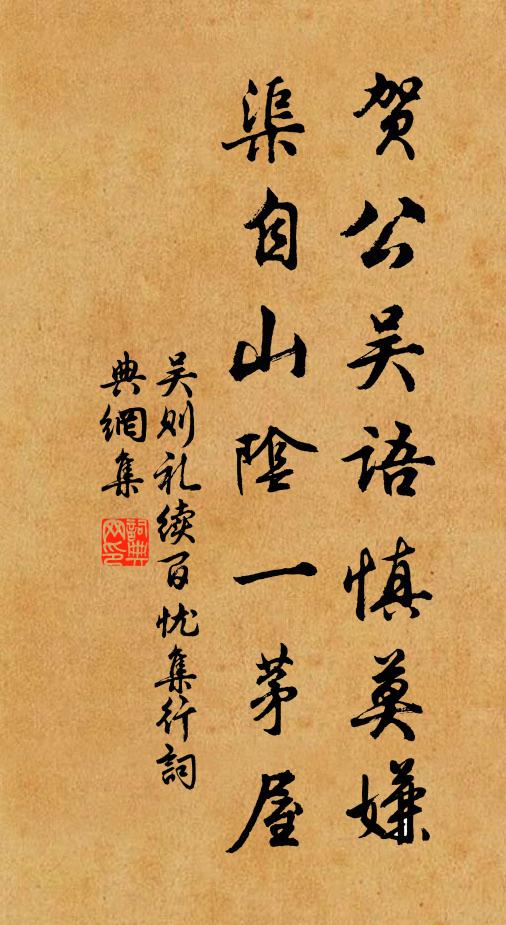 贺公吴语慎莫嫌
渠自山阴一茅屋
吴则礼续百忧集行词
典網集
詞典網印